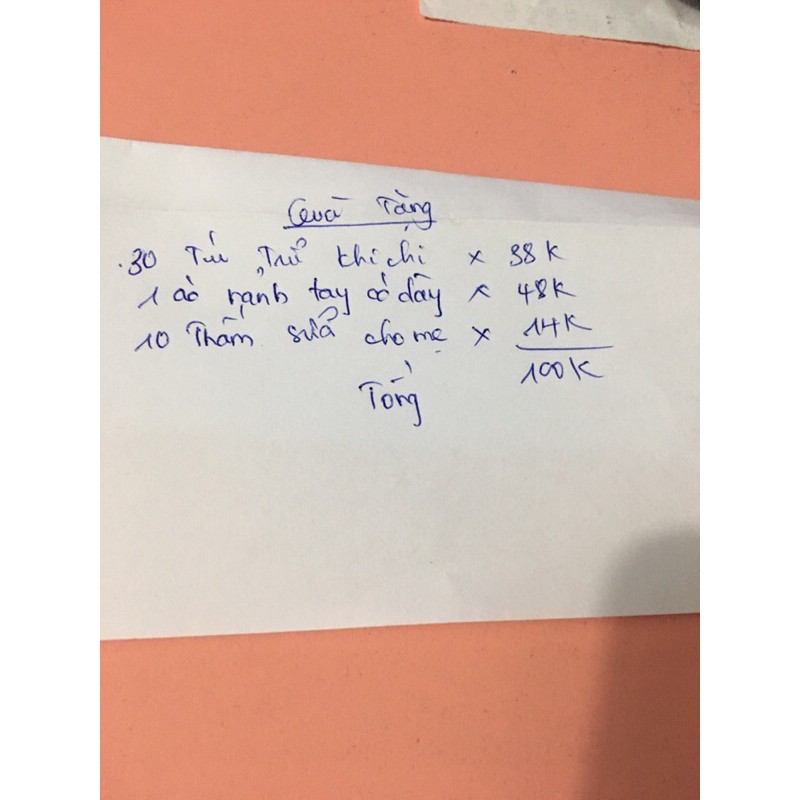 Quà Tặng
30 Túi Trữ khi chị × 38K
1 áo rảnh tay có dây × 48K
10 Thấm sữa cho mẹ × 14K
100K
Tổng